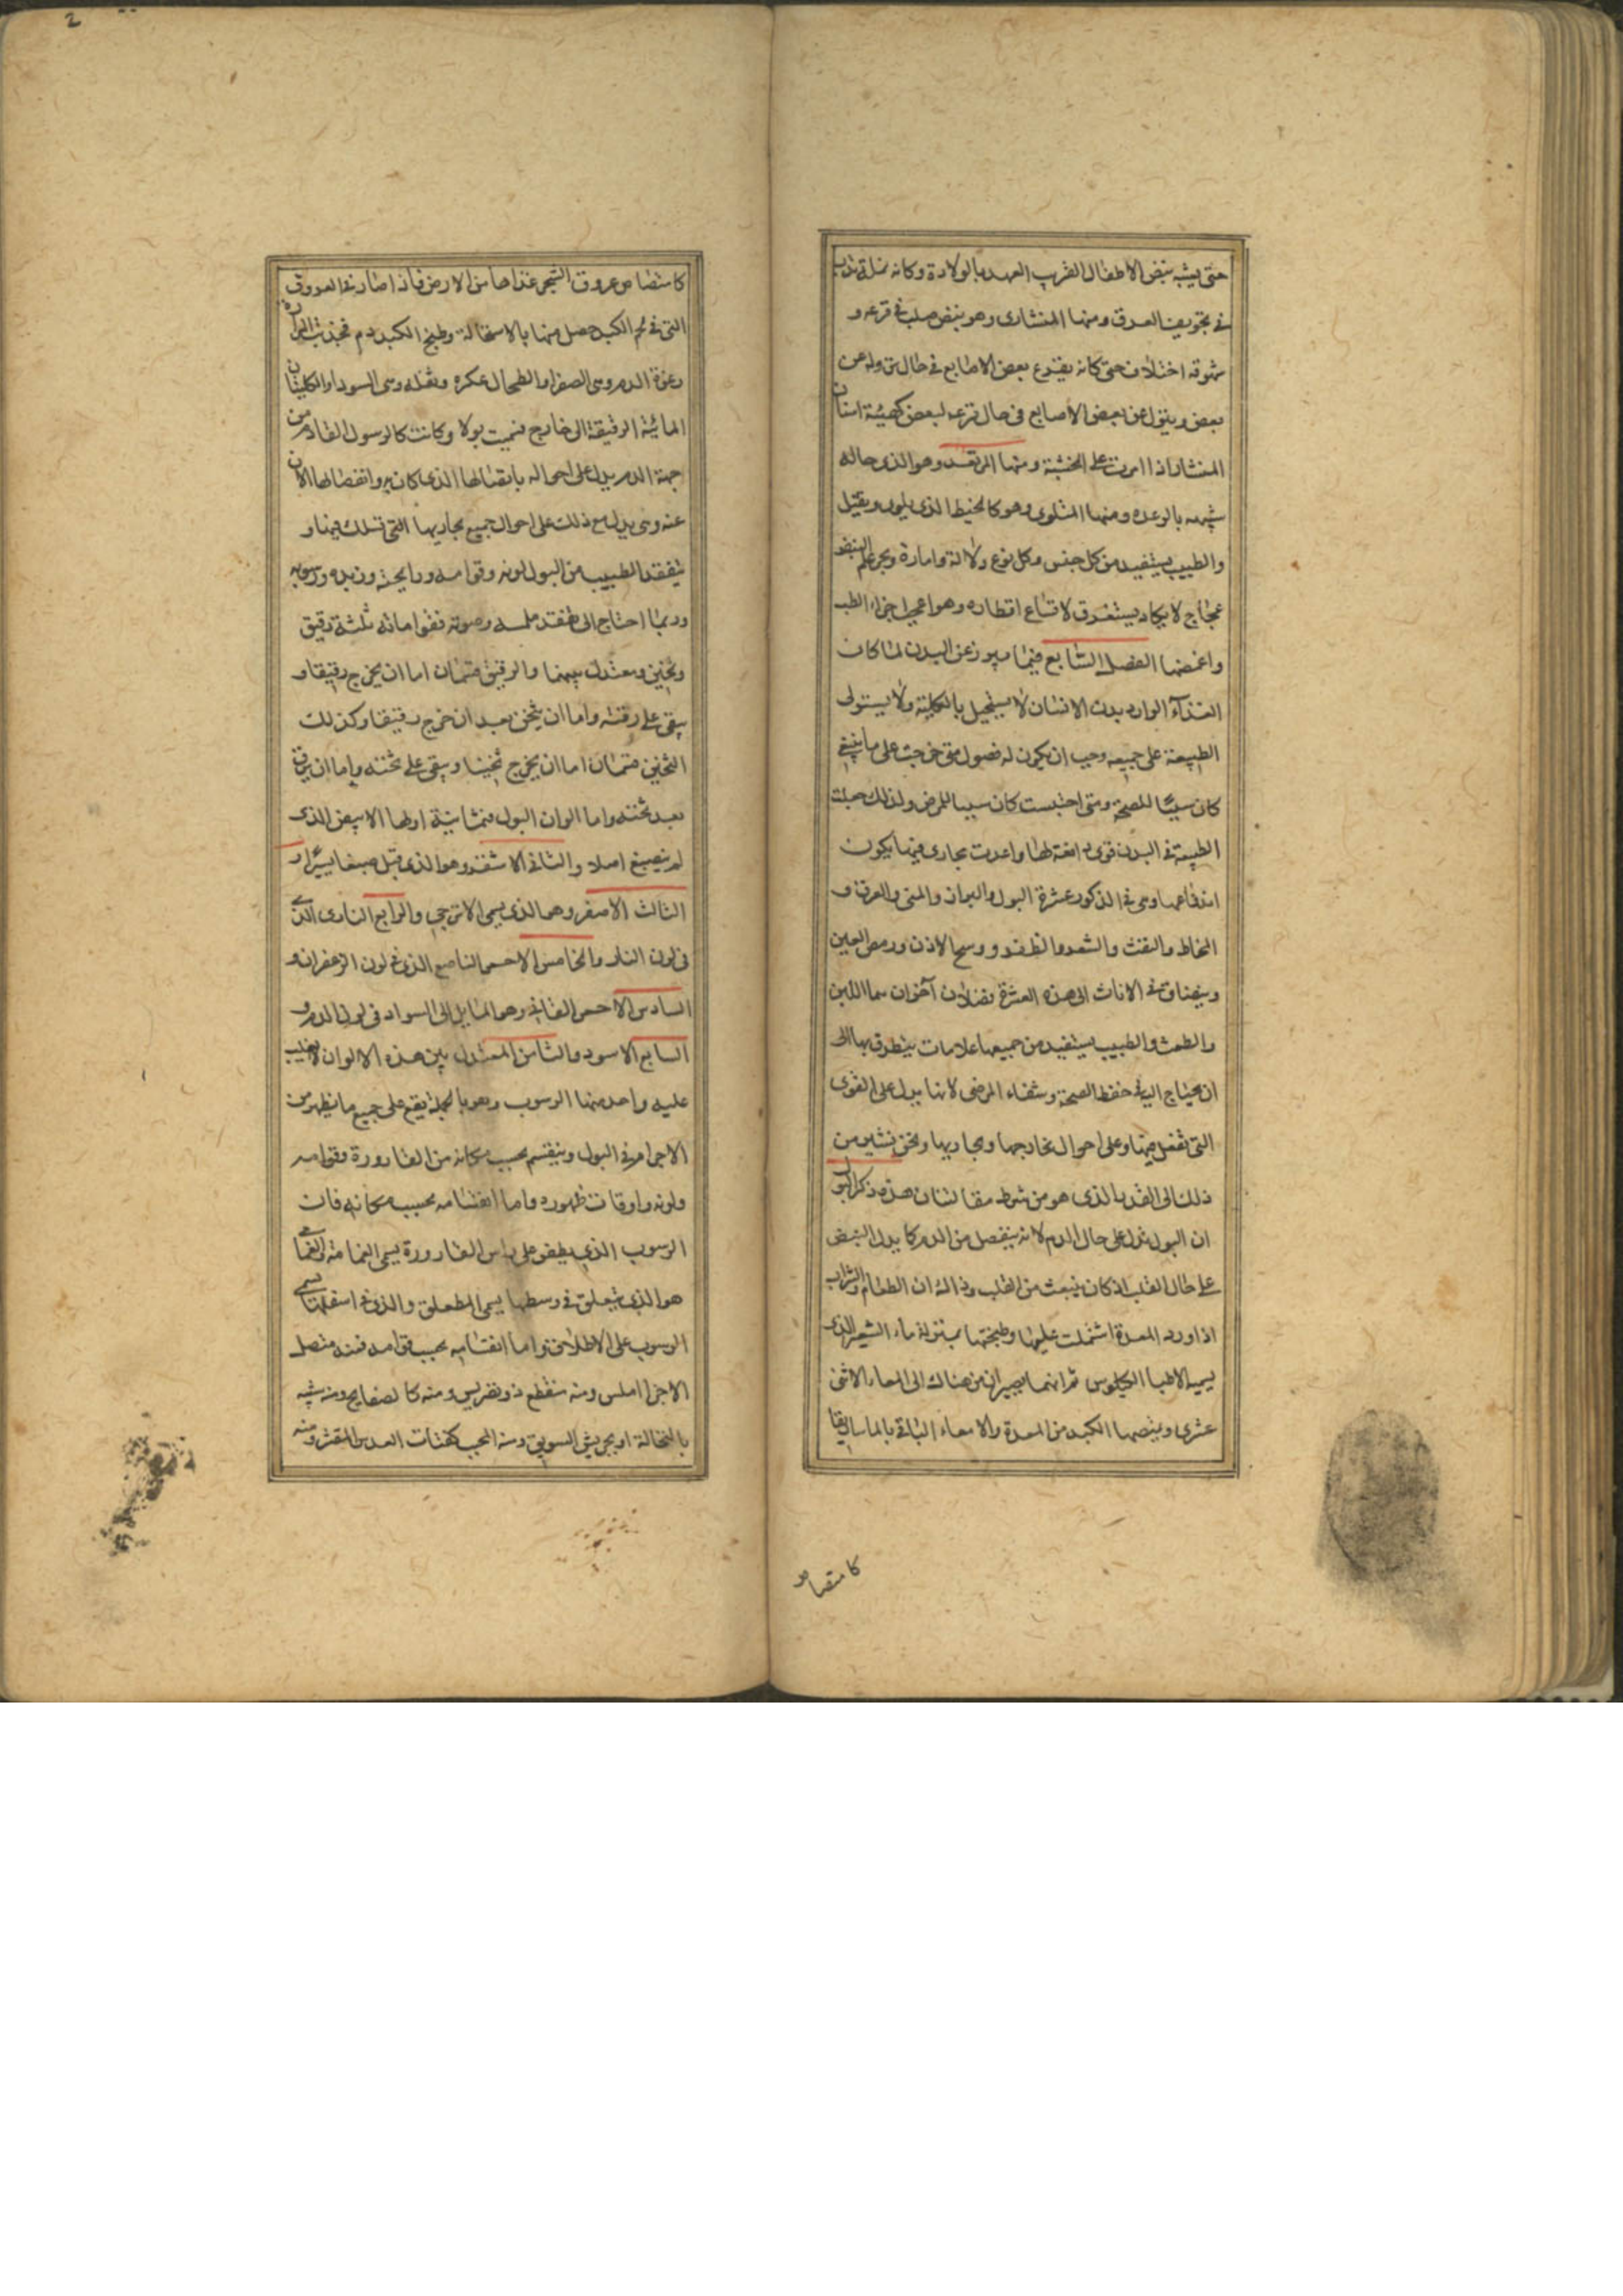 حتى يشبه بنبض الاطفال القريب العهد بالولادة وكانه نملة تدب
في تجويف العرق ومنها المنشارى وهو نبض صلب في قرعه و
شهوقه اختلاف حتى كانه يقرع بعض الاصابع في حال نزوله عن
بعض وينزل عن بعض الاصابع في حال قرعه لبعض كهيئة اسنان
المنشار اذا امرت على الخشبة ومنها المرتعد وهو الذى حاله
شبيه بالرعده ومنها الملتوى وهو كالخيط الذى يلوى ويفتل
والطبيب يستفيد من كل جنس وكل نوع دلالة وامارة وبحر علم النبض
عجاج لا يكاد يستغرق لاتساع اقطاره وهو اعمى اجزاء الطب
واغمضها الفصل السابع فيما يبرز عن البدن لما كان
الغذاء الوارد بدن الانسان لا يستحيل بالكلية ولا يستولى
الطبيعة على جميعه وجب ان يكون له فضول متى خرجت على ما ينبغي
كان سببا للصحة ومتى احتبست كان سببا للمرض ولذلك جعلت
الطبيعة في البدن قوى دافعة لها واعدت مجارى فيها يكون
اندفاعها وهى في الذكور عشرة البول والبراز والمنى والعرق و
المخاط والنفث والشعر والظفر ووسخ الاذن ورمص العين
وينضاف في الاناث الى هذه العشرة فضلان آخران هما اللبن
والطمث والطبيب يستفيد من جميعها علامات يتطرق بها الى
ان يحتاج اليه في حفظ الصحة وشفاء المرضى لانها يدل على القوى
التى تفعل فيها وعلى احوال مخارجها ومجاريها ونحن نشير من
ذلك الى القدر الذى هو من شرط مقالتنا هذه ذكر البول
ان البول يدل على حال الدم لانه ينفصل من الدم كما يدل النبض
على حال القلب اذ كان ينبعث من القلب وذاك ان الطعام والشراب
اذا ورد المعدة اشتملت عليهما وطبختهما بمنزلة ماء الشعير الذى
يسميه الاطباء الكيلوس ثم انهما يصيران من هناك الى المعاء الاثنى
عشرى ويمتصها الكبد من المعدة والامعاء الباقى بالماساريقا
كامتصاص
2
كامتصاص عروق الشجر غذاها من الارض فاذا صار في العروق
التى في لحم الكبد حصل منها بالاستحالة وطبخ الكبد دم فجذبت المرارة
رغوة الدم وهى الصفرا والطحال عكره وثفله وهى السودا والكليتان
المائية الرقيقة الى خارج فسميت بولا وكانت كالرسول القادم من
جهة الدم يدل على احواله باتصالها الذى كان به وانفصالها الان
عنه وهى يدل مع ذلك على احوال جميع مجاريها التى تسلك فيها و
يتفقد الطبيب من البول لونه وقوامه ورايحته وزبده ورسوبه
وربما احتاج الى تفقد ملمسه وصوته فقواماته ثلثة رقيق
وثخين ومعتدل بينهما والرقيق قسمان اما ان يخرج رقيقا و
يبقى على رقته واما ان يثخن بعد ان خرج رقيقا وكذلك
الثخين قسمان اما ان يخرج ثخينا ويبقى على ثخنه واما ان يرق
بعد ثخنه واما الوان البول فثمانية اولها الابيض الذى
لم ينصبغ اصلا والثانى الاشقر وهو الذى قبل صبغا يسيرا و
الثالث الاصفر وهو الذى يسمى الاترجى والرابع النارى الذى
في لون النار والخامس الاحمر الناصع الذى في لون الزعفران و
السادس الاحمر القانى وهو المايل الى السواد في لون الدم و
السابع الاسود والثامن المعتدل بين هذه الالوان لا يغلب
عليه واحد منها الرسوب وهو بالجملة يقع على جميع ما يظهر من
الاجرام في البول وينقسم بحسب مكانه من القارورة وقوامه
ولونه واوقات ظهوره واما انقسامه بحسب مكانه فان
الرسوب الذى يطفو على راس القارورة يسمى الغمامة والغمام
هو الذى يتعلق في وسطها يسمى المتعلق والذى في اسفلها يسمى
الرسوب على الاطلاق واما انقسامه بحسب قوامه فمنه متصل
الاجزا املس ومنه منقطع ذو تضريس ومنه كالصفايح ومنه شبه
بالنخالة او بجريش السويق ومنه المحبب كفتات العدس المقشر ومنه